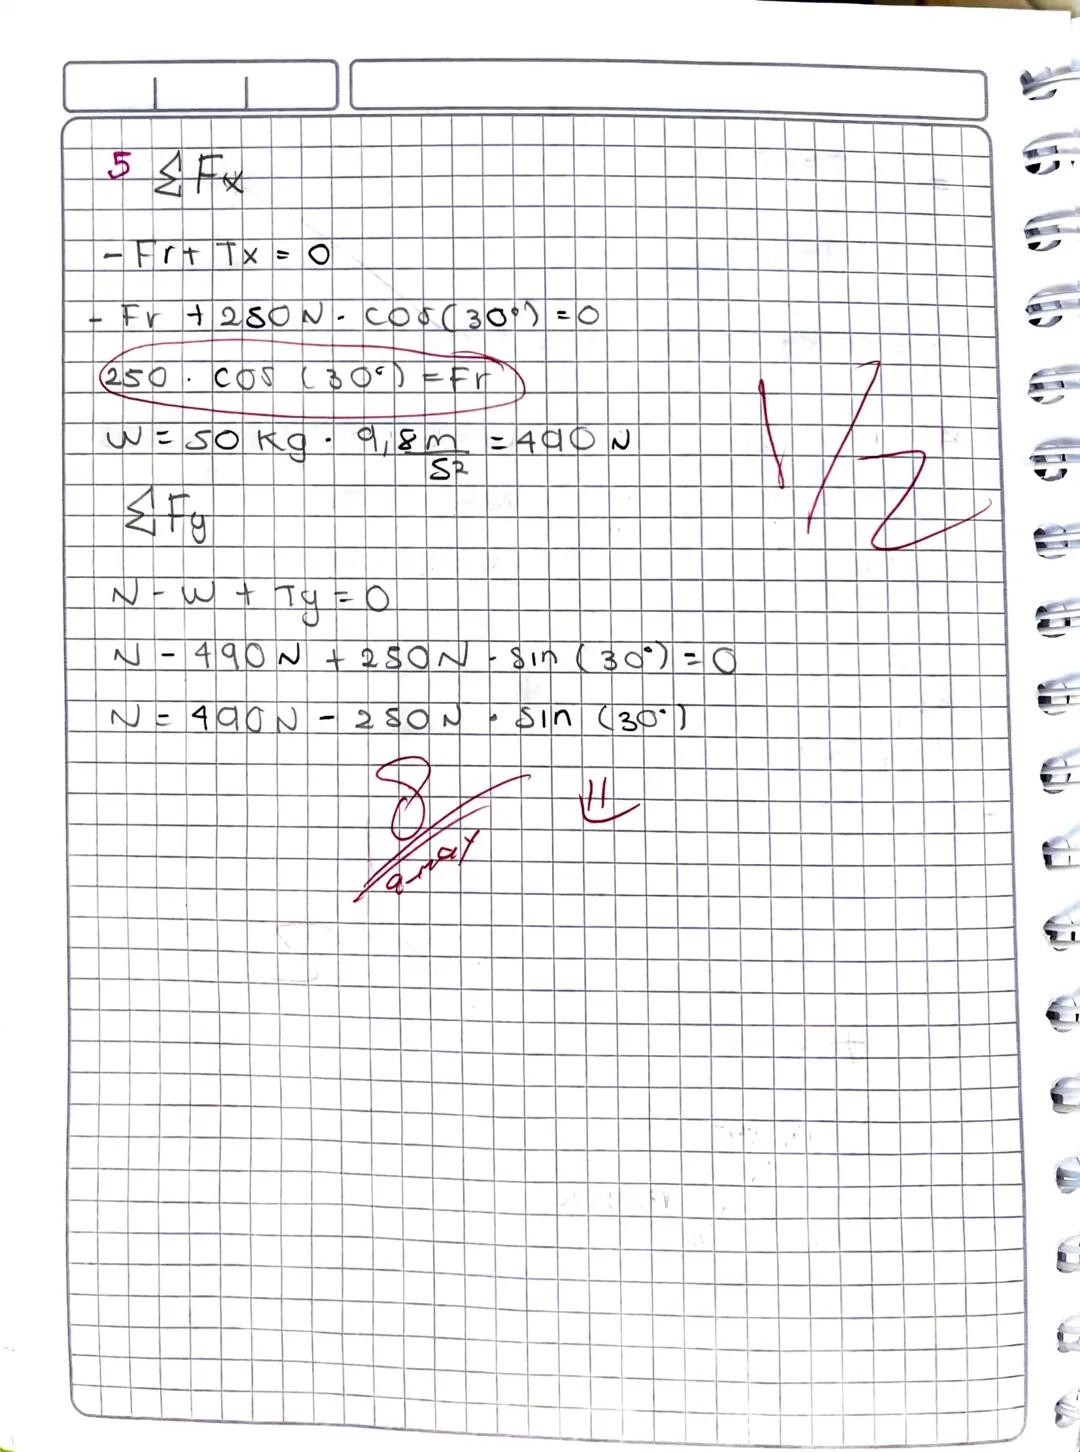 5 ΣFx
- Fr + Tx = 0
- Fr + 250N · cos(30°) = 0
250 · cos (30°) = Fr
W = 50 Kg · 9,8 m/s² = 490 N
1/2
ΣFy
N - W + Ty = 0
N - 490N + 250N · sin (30°) = 0
N = 490N - 250N · sin (30°)
8